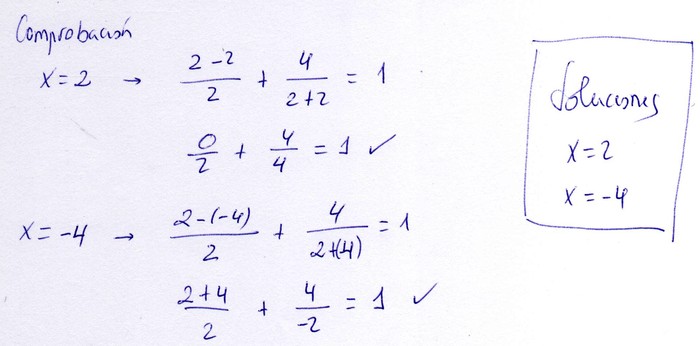 Comprobación
x = 2 → \frac{2-2}{2} + \frac{4}{2+2} = 1
\frac{0}{2} + \frac{4}{4} = 1 ✓
x = -4 → \frac{2-(-4)}{2} + \frac{4}{2+(4)} = 1
\frac{2+4}{2} + \frac{4}{-2} = 1 ✓
Soluciones
x = 2
x = -4